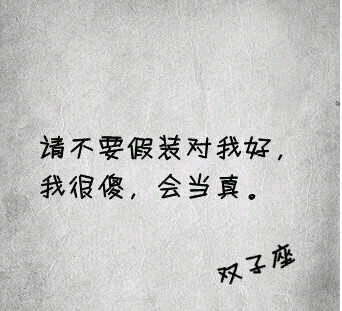 请不要假装对我好，
我很傻，会当真。
双子座